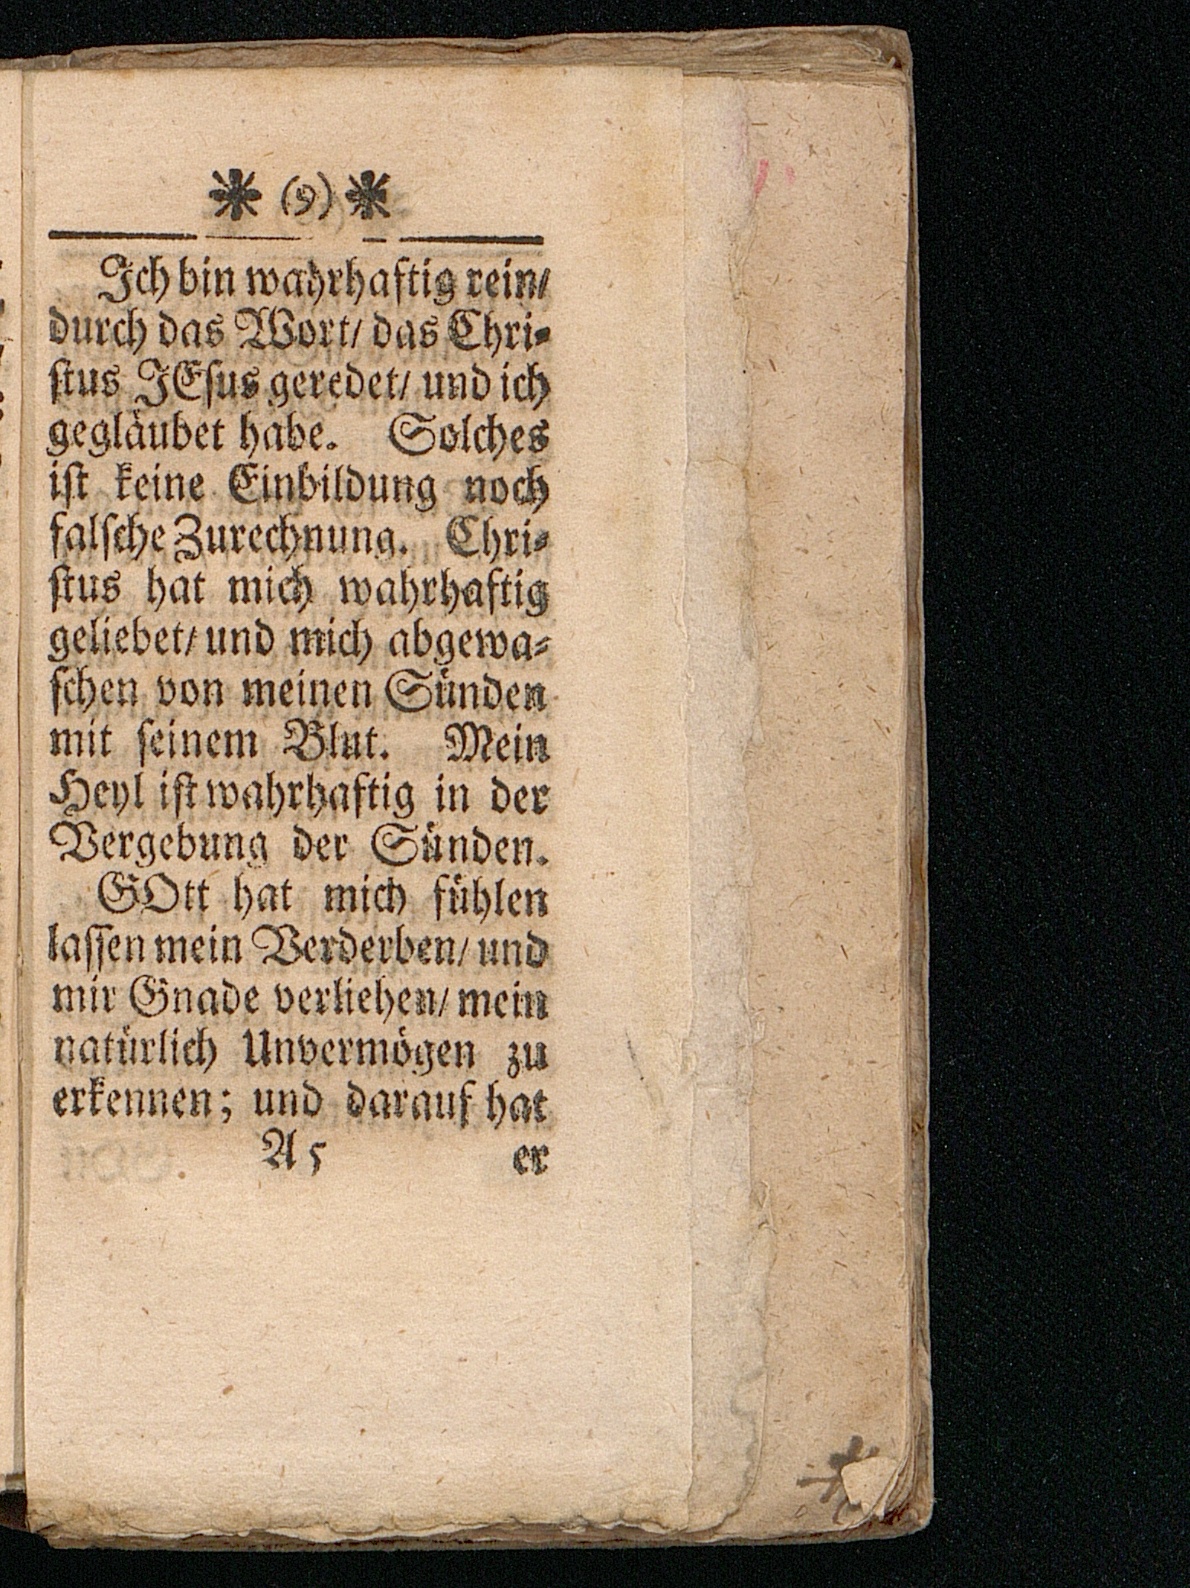 * (9) *
Ich bin wahrhaftig rein/
durch das Wort/ das Chri⸗
ſtus JEſus geredet/ und ich
gegläubet habe. Solches
iſt keine Einbildung noch
falſche Zurechnung. Chri⸗
ſtus hat mich wahrhaftig
geliebet/ und mich abgewa⸗
ſchen von meinen Sünden
mit ſeinem Blut. Mein
Heyl iſt wahrhaftig in der
Vergebung der Sünden.
GOtt hat mich fühlen
laſſen mein Verderben/ und
mir Gnade verliehen/ mein
natürlich Unvermögen zu
erkennen; und darauf hat
A5 er